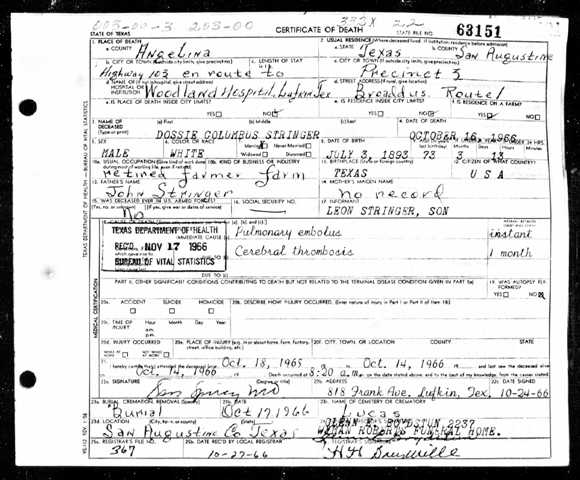 603-00-3 203-00
332X 22
STATE OF TEXAS
CERTIFICATE OF DEATH
STATE FILE NO. 63151
1. PLACE OF DEATH
a. COUNTY Angelina
2. USUAL RESIDENCE (Where deceased lived. If institution: residence before admission)
a. STATE Texas
b. COUNTY San Augustine
b. CITY OR TOWN (If outside city limits, give precinct no.)
c. LENGTH OF STAY
Highway 103 en route to
c. CITY OR TOWN (If outside city limits, give precinct no.)
Precinct 3
d. NAME OF (If not in hospital, give street address)
HOSPITAL OR INSTITUTION Woodland Hospital, Lufkin Tex
d. STREET ADDRESS (If rural, give location)
Broaddus, Route 1
e. IS PLACE OF DEATH INSIDE CITY LIMITS?
YES NO
e. IS RESIDENCE INSIDE CITY LIMITS?
YES NO
f. IS RESIDENCE ON A FARM?
YES NO
3. NAME OF DECEASED (Type or print)
(a) First (b) Middle (c) Last
DOSSIE COLUMBUS STRINGER
4. DATE OF DEATH
OCTOBER 16, 1966
5. SEX
MALE
6. COLOR OR RACE
WHITE
7. Married Never Married
Widowed Divorced
8. DATE OF BIRTH
JULY 3, 1893
73 3 13
10a. USUAL OCCUPATION (Give kind of work done during most of working life, even if retired)
retired farmer
10b. KIND OF BUSINESS OR INDUSTRY
farm
11. BIRTHPLACE (State or foreign country)
TEXAS
12. CITIZEN OF WHAT COUNTRY?
USA
13. FATHER'S NAME
John Stringer
14. MOTHER'S MAIDEN NAME
no record
15. WAS DECEASED EVER IN U.S. ARMED FORCES?
(Yes, no, or unknown) (If yes, give war or dates of service)
No
16. SOCIAL SECURITY NO.
17. INFORMANT
LEON STRINGER, SON
TEXAS DEPARTMENT OF HEALTH
REC'D. NOV 17 1966
BUREAU OF VITAL STATISTICS
IMMEDIATE CAUSE (a)
Pulmonary embolus instant
Cerebral thrombosis 1 month
DUE TO (c)
PART II. OTHER SIGNIFICANT CONDITIONS CONTRIBUTING TO DEATH BUT NOT RELATED TO THE TERMINAL DISEASE CONDITION GIVEN IN PART I(a)
19. WAS AUTOPSY PERFORMED?
YES NO
20a. ACCIDENT SUICIDE HOMICIDE
20b. DESCRIBE HOW INJURY OCCURRED. (Enter nature of injury in Part I or Part II of item 18)
20c. TIME OF INJURY
Hour Month Day Year
a.m.
p.m.
20d. INJURY OCCURRED
20e. PLACE OF INJURY (e.g., in or about home, farm, factory, street, office building, etc.)
20f. CITY, TOWN, OR LOCATION COUNTY STATE
21. I hereby certify that I attended the deceased from Oct. 18, 1965 to Oct 14, 1966 and last saw the deceased alive
on Oct 14, 1966 Death occurred at 8:20 a.m. on the date stated above, and to the best of my knowledge, from the causes stated
22a. SIGNATURE
(Degree or title)
22b. ADDRESS
818 Frank Ave, Lufkin, Tex.
22c. DATE SIGNED
10-24-66
23a. BURIAL, CREMATION, REMOVAL (Specify)
Burial
23b. DATE
Oct 17, 1966
23c. NAME OF CEMETERY OR CREMATORY
Lucas
23d. LOCATION (City, town, or county) (State)
San Augustine Co Texas
24. FUNERAL DIRECTOR'S SIGNATURE
GLENN E. BOYDSTUN 2237
WYMAN ROBERTS FUNERAL HOME.
25a. REGISTRAR'S FILE NO.
367
25b. DATE REC'D BY LOCAL REGISTRAR
10-27-66
25c. REGISTRAR'S SIGNATURE
TEXAS DEPARTMENT OF HEALTH — BUREAU OF VITAL STATISTICS
MEDICAL CERTIFICATION